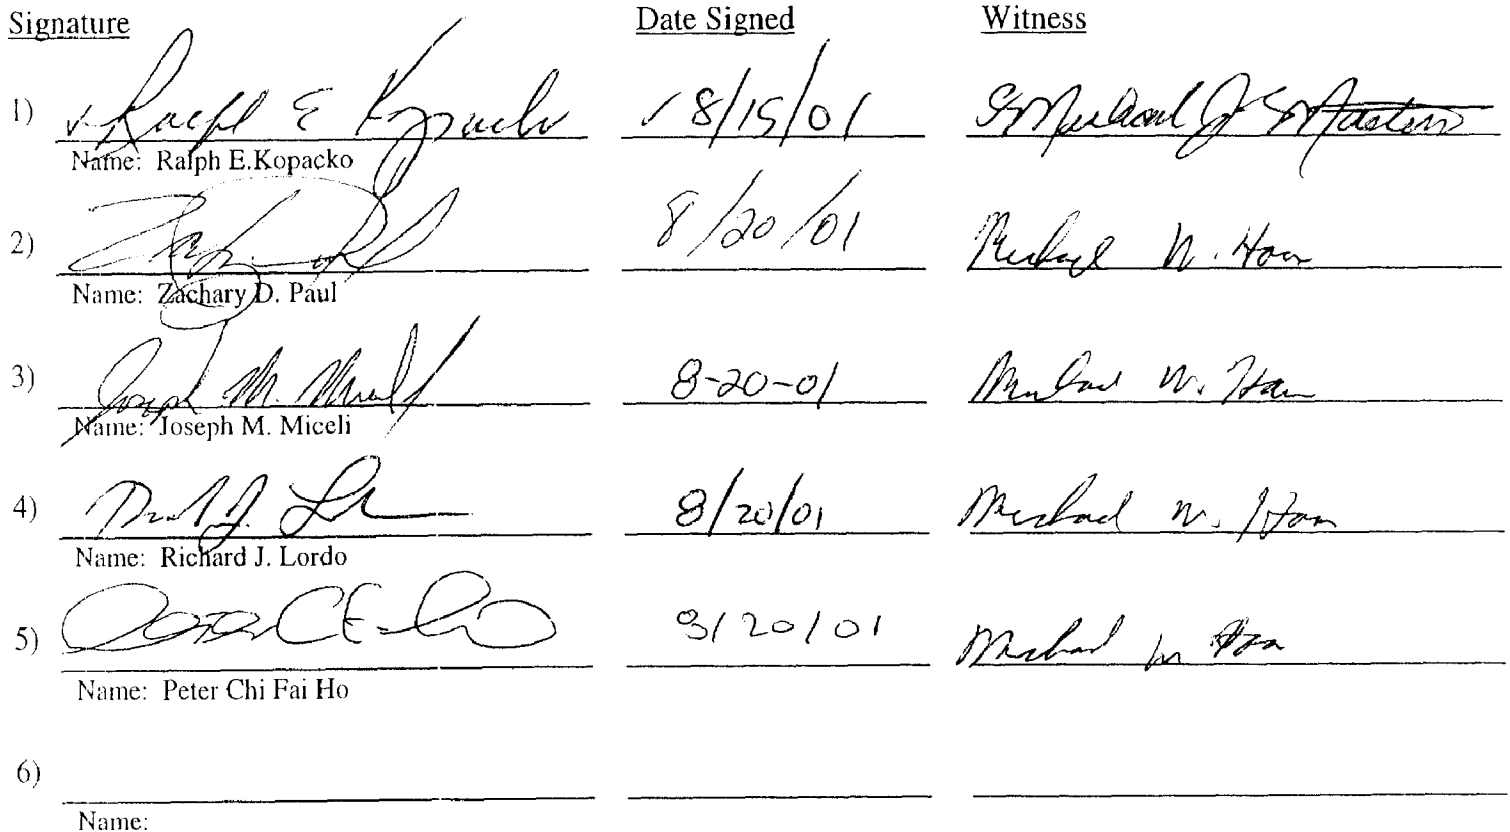 Signature Date Signed Witness
1) Ralph E Kopacko 8/15/01 Michael J
Name: Ralph E.Kopacko
2) 8/20/01 Michael W.
Name: Zachary D. Paul
3) Joseph M. Miceli 8-20-01 Michael W.
Name: Joseph M. Miceli
4) 8/20/01 Michael W.
Name: Richard J. Lordo
5) 8/20/01 Michael W
Name: Peter Chi Fai Ho
6)
Name: